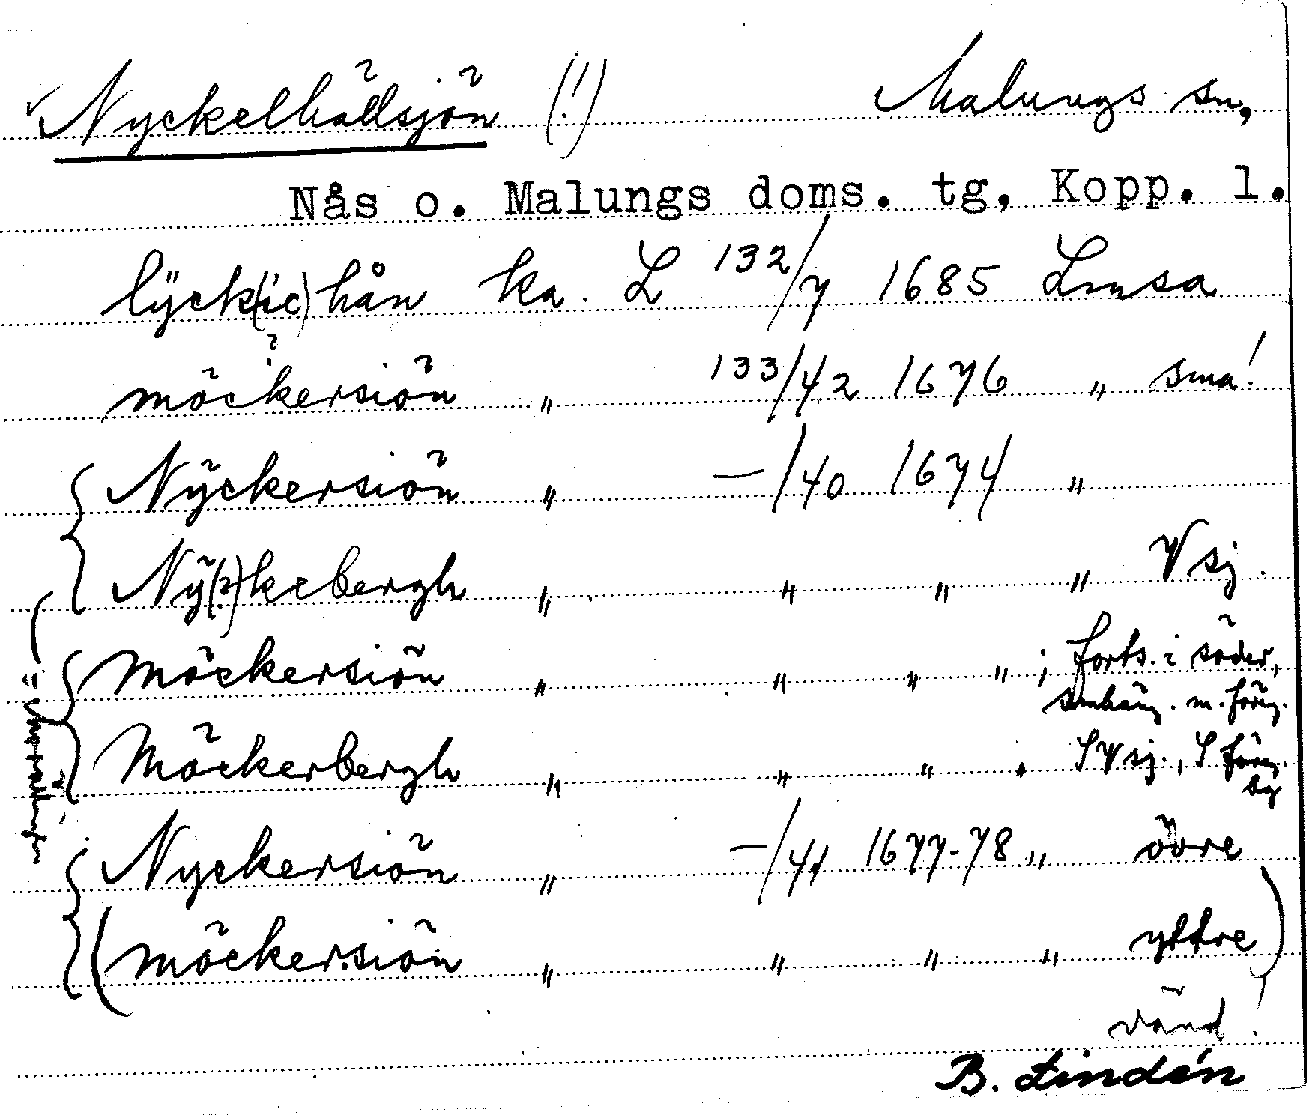 Nyckelhållsjön (!) Malungs sn,
Nås o. Malungs doms. tg, Kopp. l.
lÿck(ic)hån ka. L 132/7 1685 Lmsa
?
möckersiön " 133/42 1676 " små!
Nÿckersiön " —/40 1674 "
Nÿ(?)kebergh " " " " V sj.
Möckersiön " " " " ; forts. i söder,
samhäng. m. föreg.
Möckerbergh " " " " S V sj., S föreg.
bg
Nyckersiön " —/41 1677-78 " övre
(möckersiön " " " " yttre)
vänd!
B. Lindén